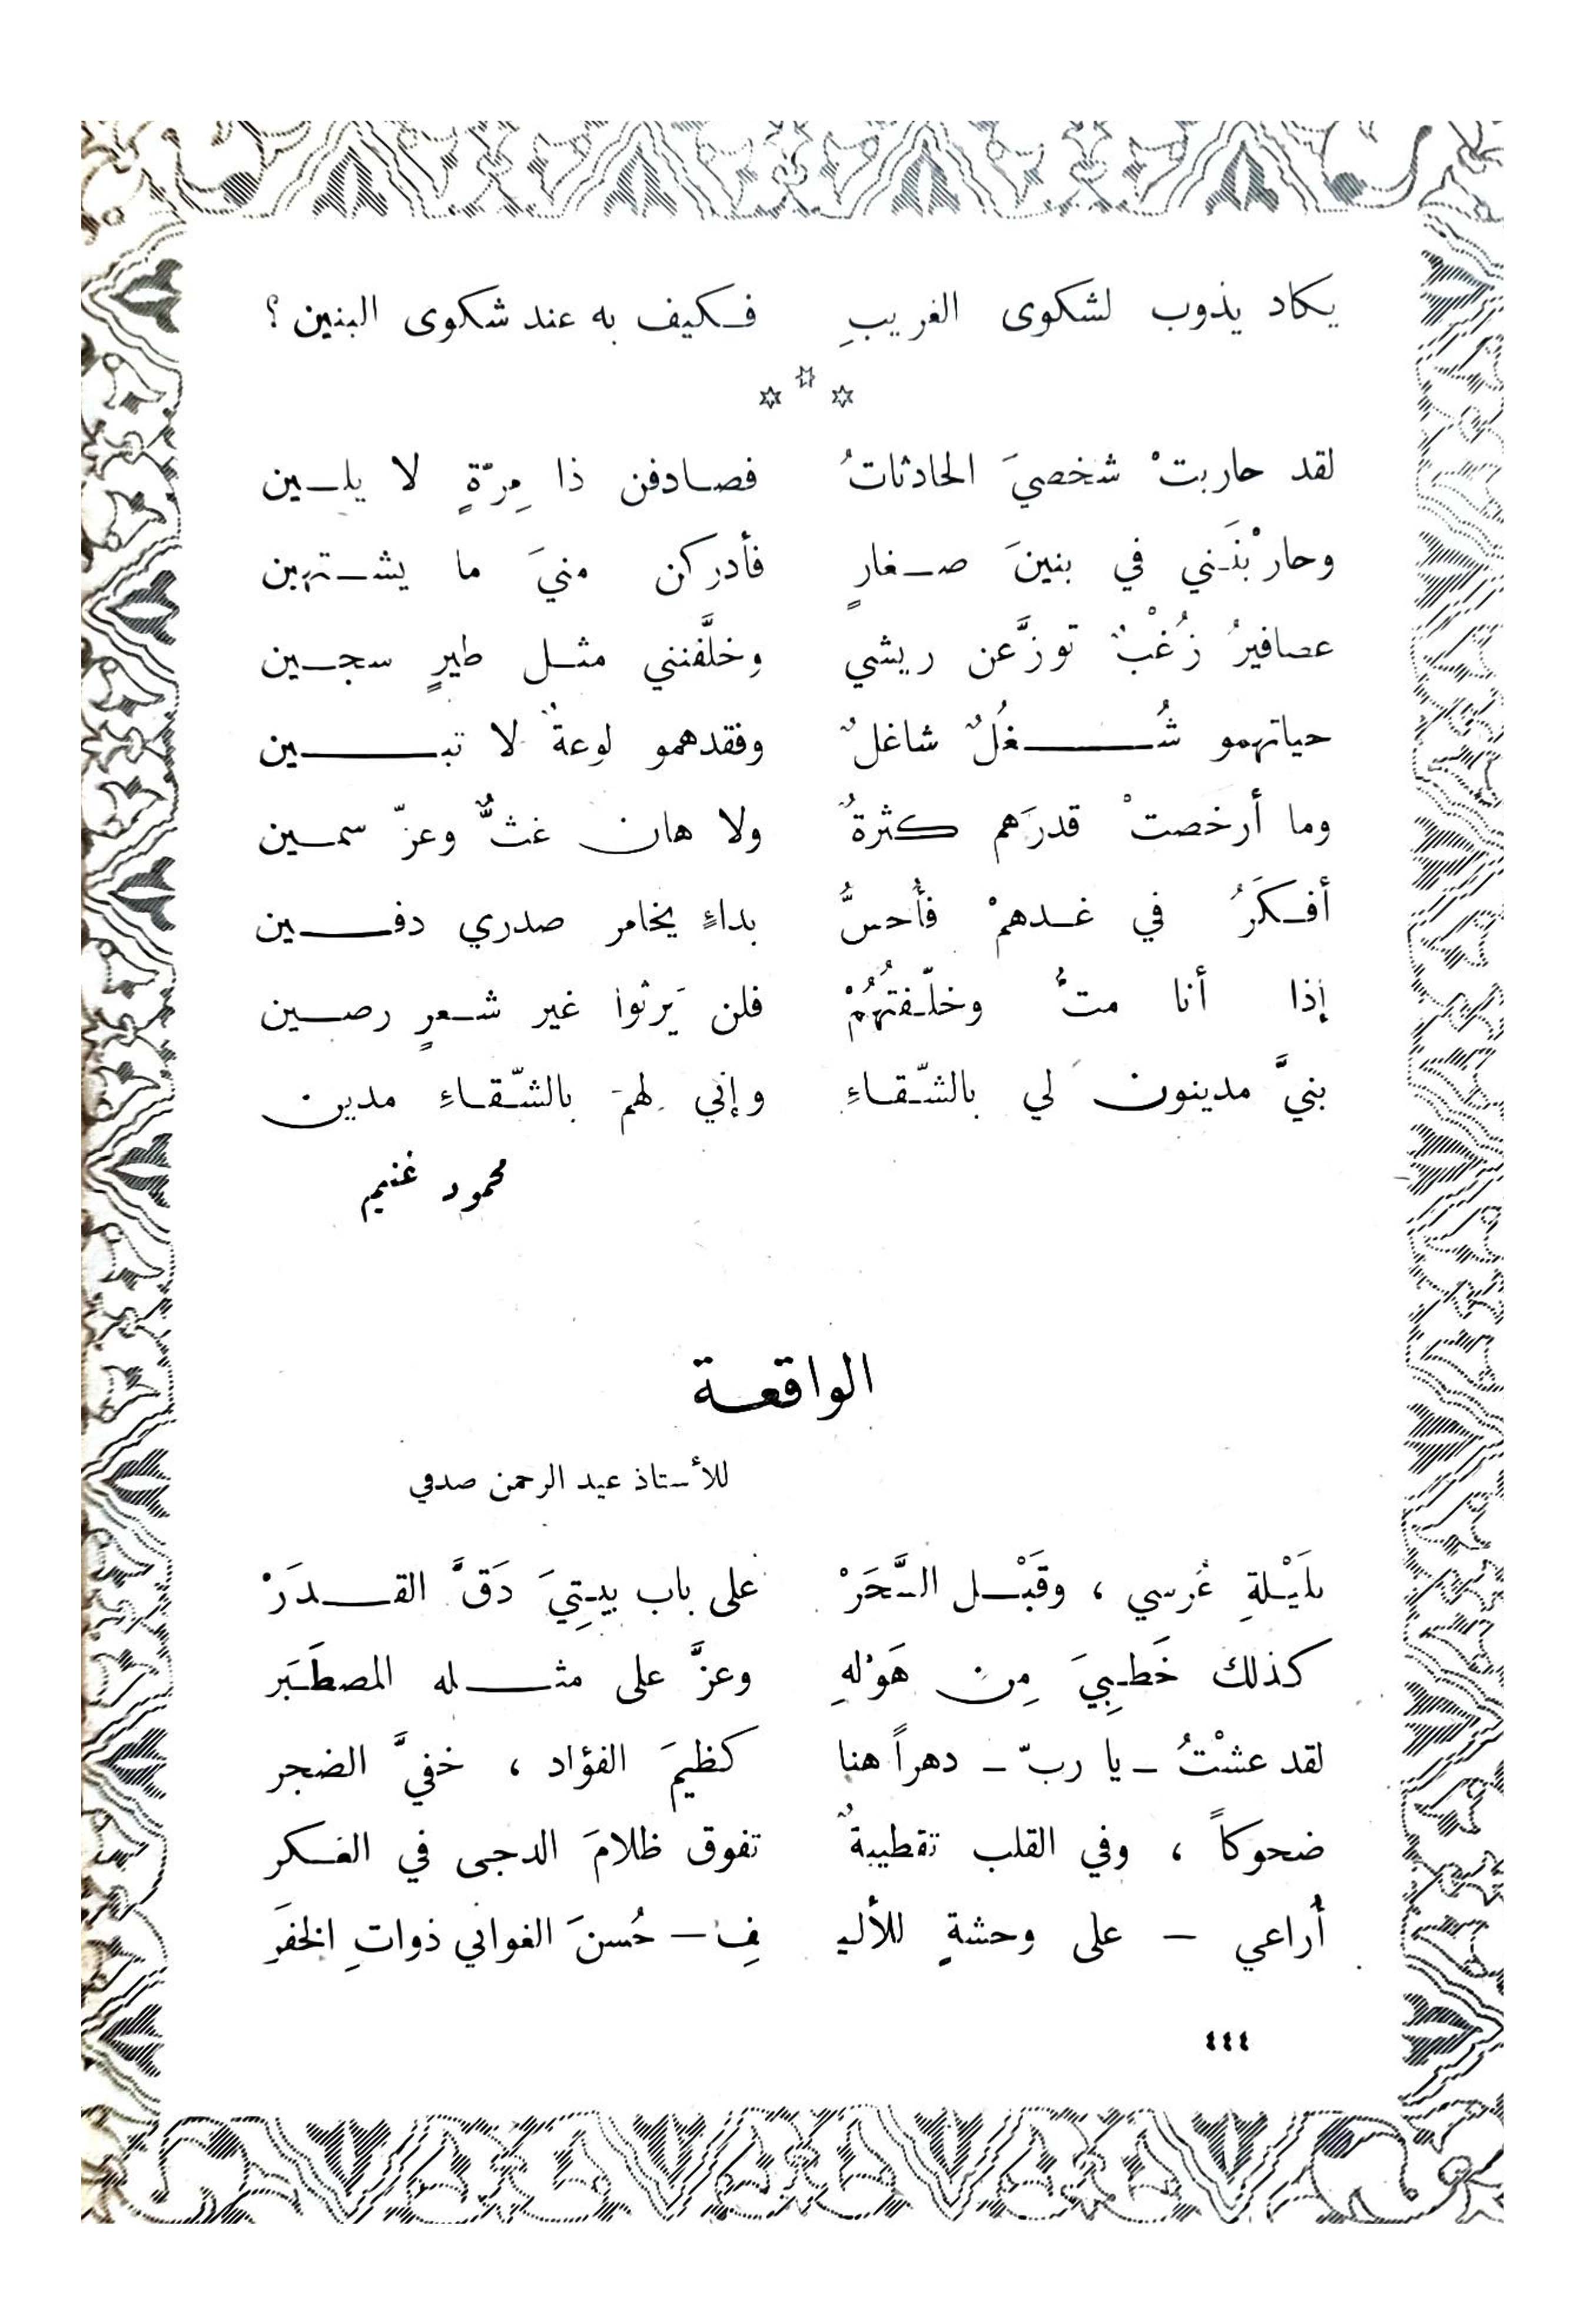 يكاد يذوب لشكوى الغريبِ فكيف به عند شكوى البنين ؟
لقد حاربتْ شخصيَ الحادثاتُ فصادفن ذا مِرّةٍ لا يلين
وحارْبْنَني في بنينَ صغارٍ فأدركن منيَ ما يشتهين
عصافيرُ زُغْبٌ توزَّعن ريشي وخلَّفنني مثل طيرٍ سجين
حياتهمو شُغُلٌ شاغلٌ وفقدهمو لوعةٌ لا تبين
وما أرخصتْ قدرَهم كثرةٌ ولا هان غثٌّ وعزّ سمين
أفكرُ في غدهمْ فأُحسُّ بداءٍ يخامر صدري دفين
إذا أنا متُّ وخلّفتُهُمْ فلن يَرثوا غير شعرٍ رصين
بنيَّ مدينون لي بالشّقاءِ وإني لهمَ بالشّقاءِ مدين
محمود غنيم
الواقعة
للأستاذ عبد الرحمن صدقي
بلَيْلةِ عُرسي ، وقَبْل السَّحَرْ على باب بيتِيَ دَقَّ القدَرْ
كذلك خَطبِيَ مِن هَوْلهِ وعزَّ على مثله المصطَبَر
لقد عشْتُ – يا ربّ – دهراً هنا كظيمَ الفؤاد ، خفيَّ الضجر
ضحوكاً ، وفي القلب تقطيبةٌ تفوق ظلامَ الدجى في الفكر
أُراعي – على وحشةٍ للأليـ فِ – حُسنَ الغواني ذواتِ الخفَرِ
٤٤٤